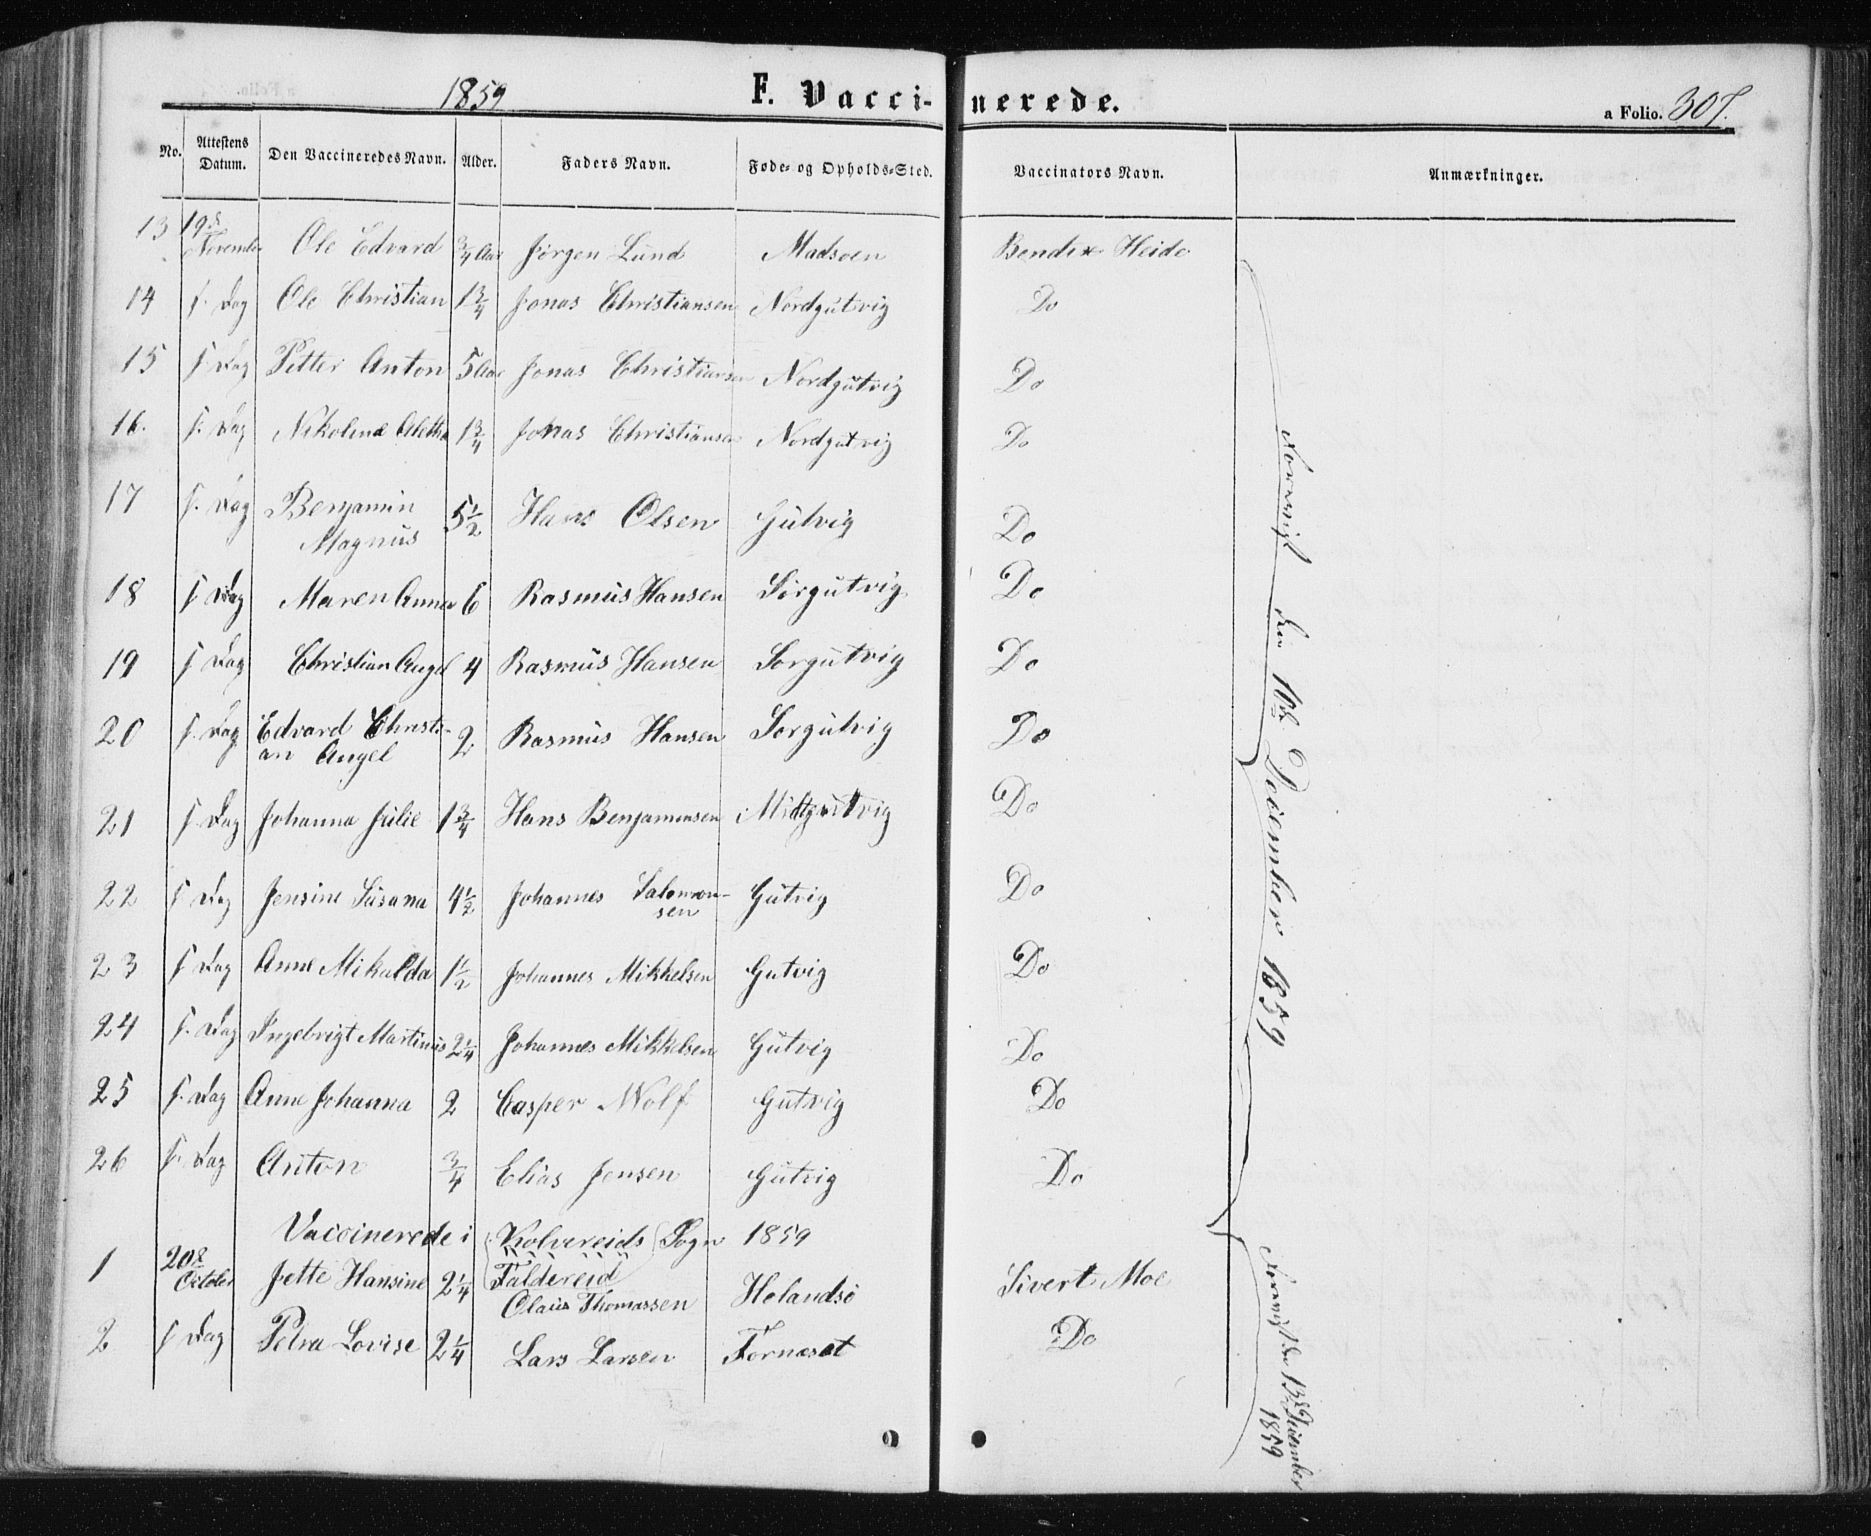 1859 F. Vaccinerede. a Folio. 307.
No. Attestens Datum. Den Vaccineredes Navn. Alder. Faders Navn. Føde- og Opholds-Sted. Vaccinators Navn. Anmærkninger.
13 19de November Ole Edvard 3/4 Aar Jørgen Lund Madsøen Bendix Heide
14 s. Dag Ole Christian 1 3/4 Jonas Christiansen Nordgutvig Do
15 s. Dag Petter Anton 5 Aar Jonas Christiansen Nordgutvig Do
16. s. Dag Nikoline Aletha 1 3/4 Jonas Christiansen Nordgutvig Do
17 s. Dag Benjamin Magnus 5 1/2 Hans Olsen Gutvig Do
18 s Dag Maren Anna 6 Rasmus Hansen Sørgutvig Do
19 s Dag Christian Angel 4 Rasmus Hansen Sørgutvig Do
20 s. Dag Edvard Christi-
an Angel 2 Rasmus Hansen Sørgutvig Do
21 s. Dag Johanna Julie 1 3/4 Hans Benjaminsen Midtgutvig Do
22 s Dag Jensine Susana 4 1/2 Johannes Salomon-
sen Gutvig Do
23 s Dag Anne Mikalda 1 1/2 Johannes Mikkelsen Gutvig Do
24 s. Dag Ingebrigt Martinus 2 1/4 Johannes Mikkelsen Gutvig Do
25 s. Dag Anne Johanna 2 Casper Wolf Gutvig Do
26 s. Dag Anton 3/4 Elias Jensen Gutvig Do
den 10de December 1859
Vaccinerede i Kolvereids Sogn 1859
Faldereid
1 20de October Jette Hansine 2 1/4 Olaus Thomassen Helandsø Sivert Moe
2 s Dag Petra Lovise 2 1/4 Lars Larsen Fornæset Do
13de December
1859